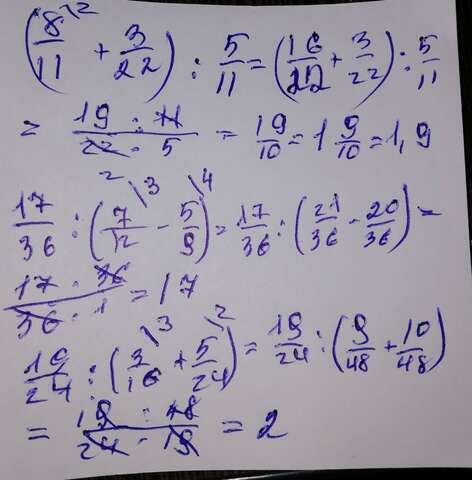 (8/11 \2 + 3/22) : 5/11 = (16/22 + 3/22) : 5/11
= 19 · 11 / 22 · 5 2 = 19/10 = 1 9/10 = 1,9
17/36 : (7/12 \3 - 5/9 \4) = 17/36 : (21/36 - 20/36) =
17 · 36 / 36 · 1 = 17
19/24 : (3/16 \3 + 5/24 \2) = 19/24 : (9/48 + 10/48)
= 19 · 48 / 24 · 19 = 2